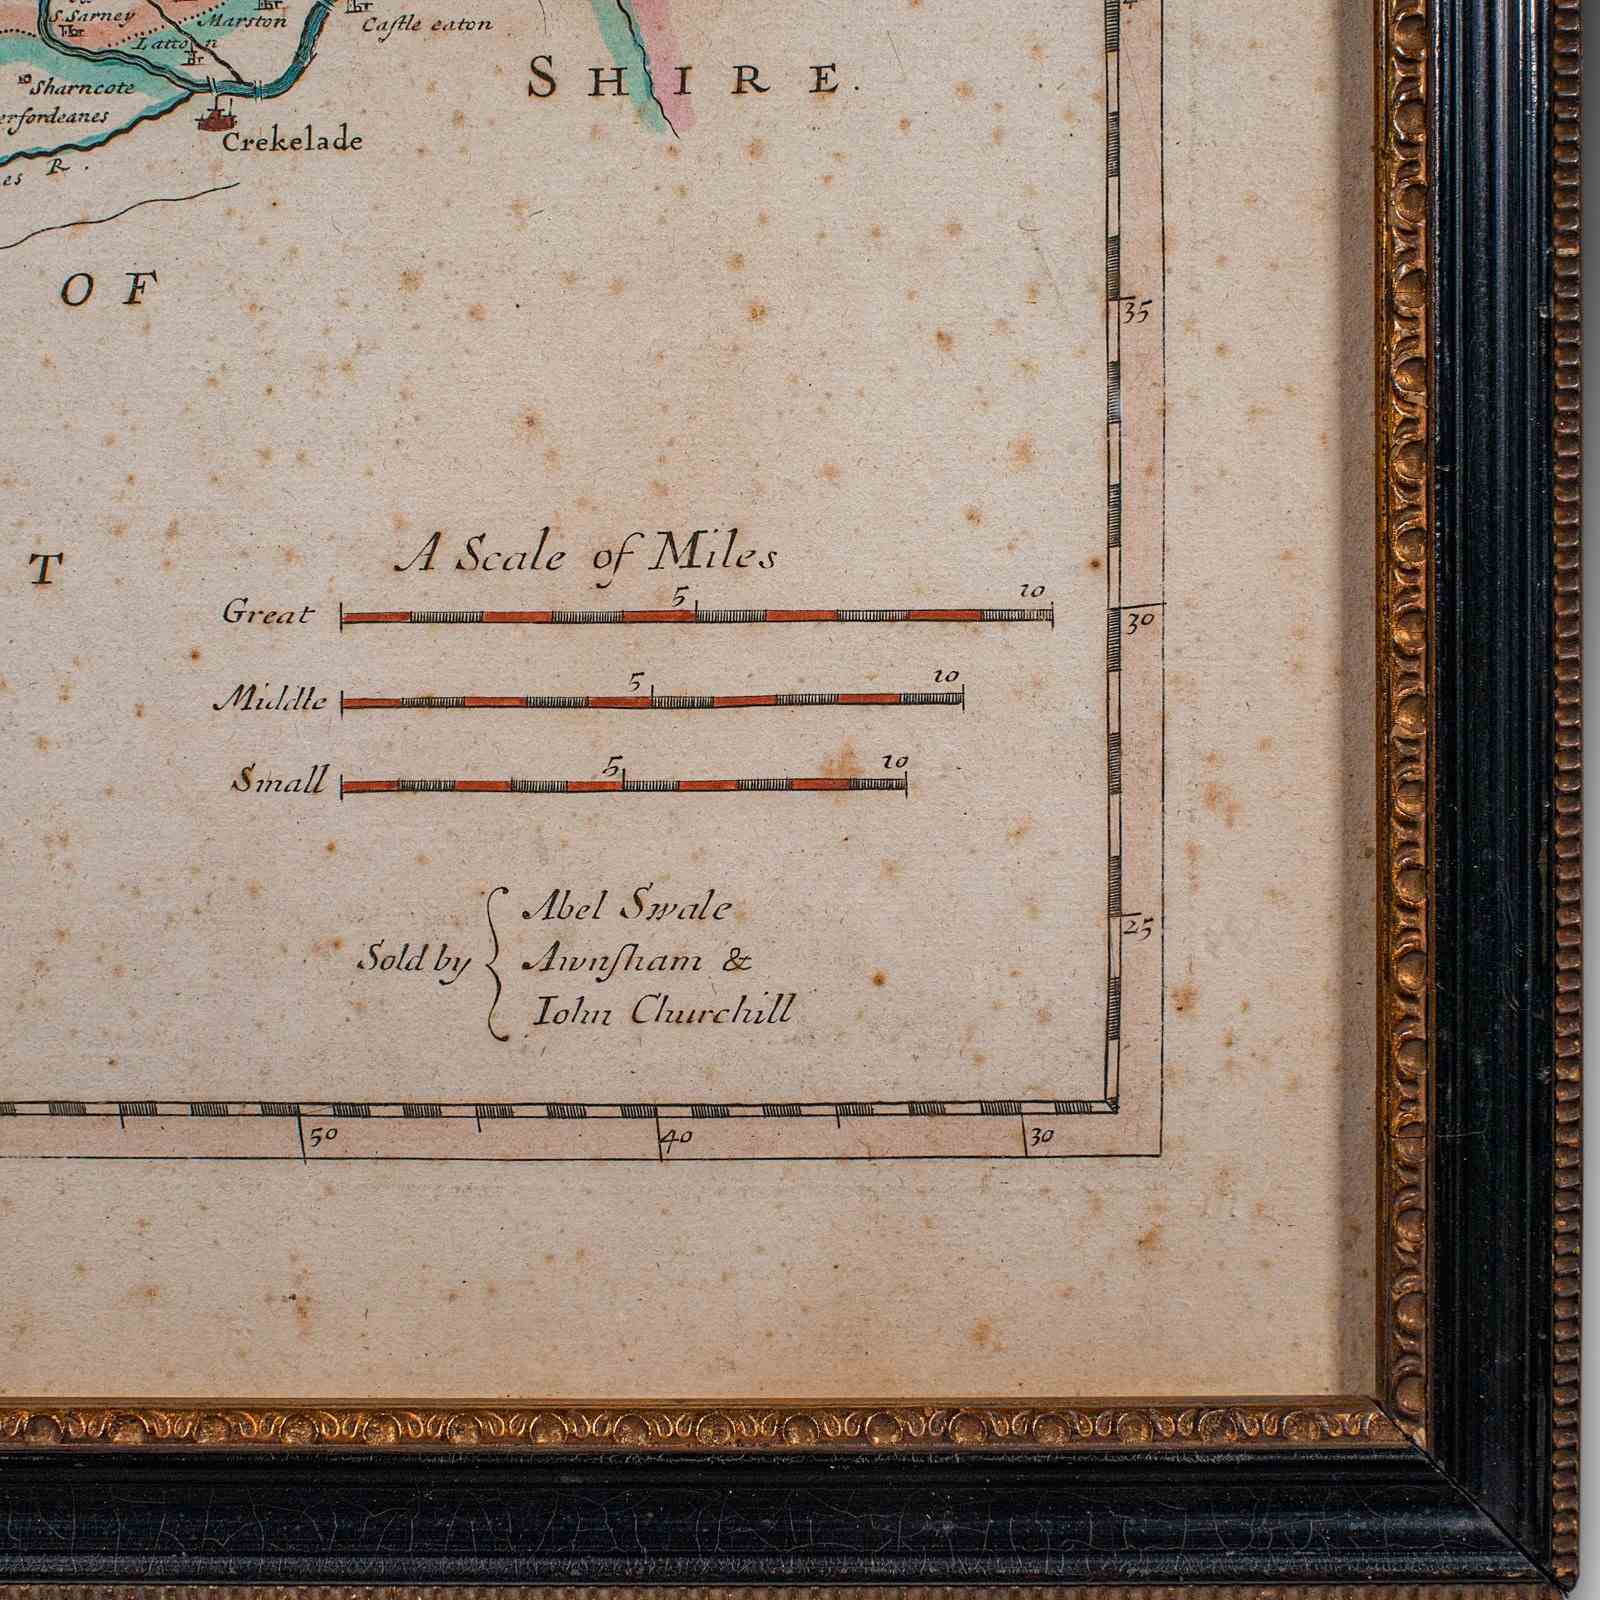 S. Sarney
Marston
Castle eaton
Latton
Sharncote
erfordeanes
Crekelade
es R.
SHIRE.
OF
35
T
A Scale of Miles
Great 5 10
30
Middle 5 10
Small 5 10
Sold by { Abel Swale
Awnſham &
Iohn Churchill
25
50 40 30